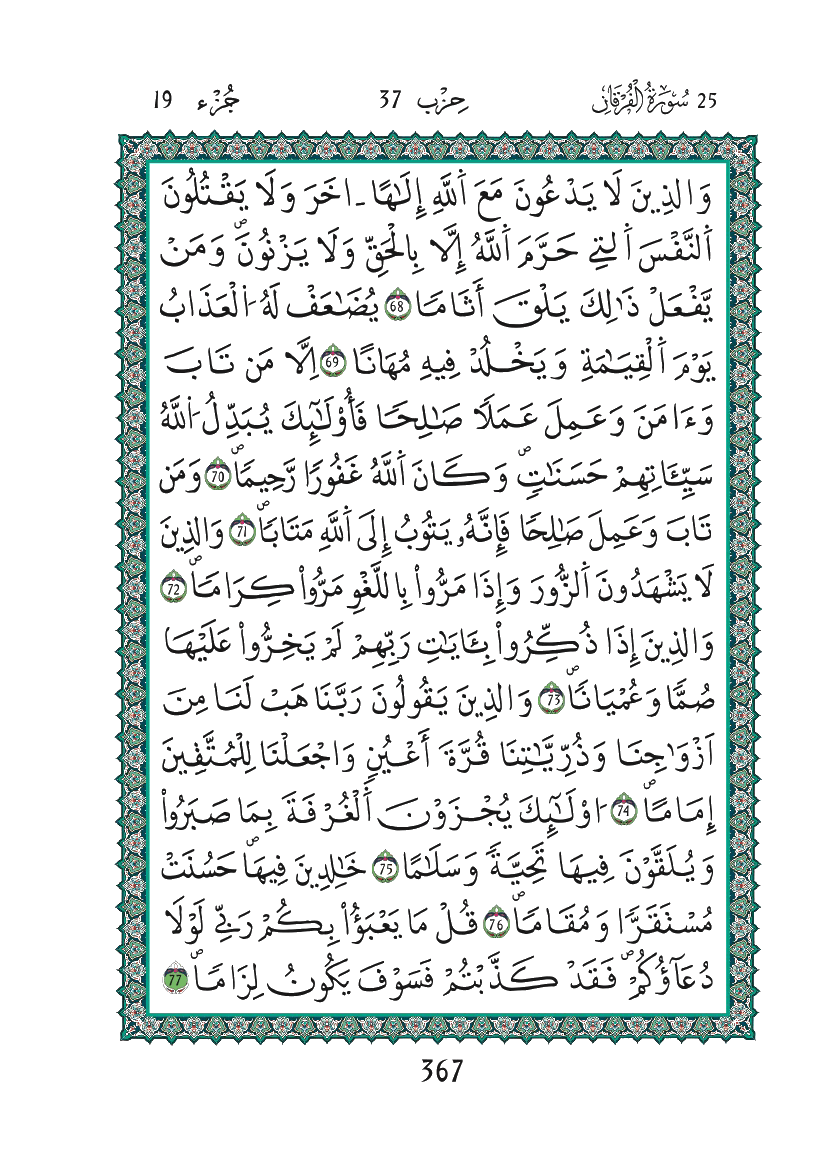 25 سُورَةُ الْفُرْقَانِ حِزْب 37 جُزْء 19
وَالذِينَ لَا يَدْعُونَ مَعَ اَ۬للَّهِ إِلَٰهًا ـ اخَرَ وَلَا يَقْتُلُونَ
اَ۬لنَّفْسَ اَ۬لتِے حَرَّمَ اَ۬للَّهُ إِلَّا بِالْحَقِّ وَلَا يَزْنُونَۖ وَمَنْ
يَّفْعَلْ ذَٰلِكَ يَلْقَ أَثَامًا 68 يُضَٰعَفْ لَهُ اُ۬لْعَذَابُ
يَوْمَ اَ۬لْقِيَٰمَةِ وَيَخْلُدْ فِيهِ مُهَانًا 69 اِلَّا مَن تَابَ
وَءَامَنَ وَعَمِلَ عَمَلًا صَٰلِحًا فَأُوْلَٰٓئِكَ يُبَدِّلُ اُ۬للَّهُ
سَيِّـَٔاتِهِمْ حَسَنَٰتٍۖ وَكَانَ اَ۬للَّهُ غَفُورًا رَّحِيمًاۖ 70 وَمَن
تَابَ وَعَمِلَ صَٰلِحًا فَإِنَّهُۥ يَتُوبُ إِلَى اَ۬للَّهِ مَتَابًاۖ 71 وَالذِينَ
لَا يَشْهَدُونَ اَ۬لزُّورَ وَإِذَا مَرُّواْ بِاللَّغْوِ مَرُّواْ كِرَامًاۖ 72
وَالذِينَ إِذَا ذُكِّرُواْ بِـَٔايَٰتِ رَبِّهِمْ لَمْ يَخِرُّواْ عَلَيْهَا
صُمًّا وَعُمْيَانًاۖ 73 وَالذِينَ يَقُولُونَ رَبَّنَا هَبْ لَنَا مِنَ
اَزْوَٰجِنَا وَذُرِّيَّٰتِنَا قُرَّةَ أَعْيُنٍ وَاجْعَلْنَا لِلْمُتَّقِينَ
إِمَامًاۖ 74 ا۟وْلَٰٓئِكَ يُجْزَوْنَ اَ۬لْغُرْفَةَ بِمَا صَبَرُواْ
وَيُلَقَّوْنَ فِيهَا تَحِيَّةً وَسَلَٰمًا 75 خَٰلِدِينَ فِيهَاۖ حَسُنَتْ
مُسْتَقَرًّا وَمُقَامًاۖ 76 قُلْ مَا يَعْبَؤُاْ بِكُمْ رَبِّے لَوْلَا
دُعَآؤُكُمْۖ فَقَدْ كَذَّبْتُمْ فَسَوْفَ يَكُونُ لِزَامًاۖ 77
367